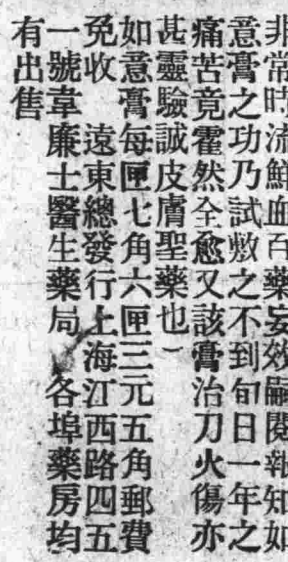 非常時流鮮血百藥妄效嗣閱報知如
意膏之功乃試敷之不到旬日一年之
痛苦竟霍然全愈又該膏治刀火傷亦
甚靈驗誠皮膚聖藥也）
如意膏每匣七角六匣三元五角郵費
免收　遠東總發行上海江西路四五
一號韋廉士醫生藥局　各埠藥房均
有出售